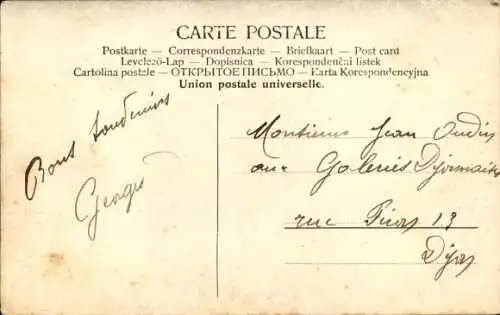 CARTE POSTALE
Postkarte — Correspondenzkarte — Briefkaart — Post card
Levelező-Lap — Dopisnica — Korespondenční lístek
Cartolina postale — ОТКРЫТОЕ ПИСЬМО — Karta Korespondencyjna
Union postale universelle.
Bons Souvenirs
Georges
Monsieur Jean Oudin
aux Galeries Dijonnaises
rue 13
Dijon